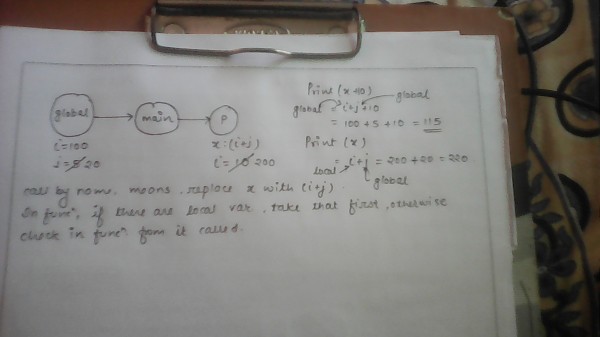 global → main → P
i=100
j=5 20
x:(i+j)
i=10 200
Print (x+10)
global = i+j+10 global
= 100+5+10 = 115
Print (x)
= i+j = 200+20=220
local
global
call by name. means. replace x with (i+j).
In funcⁿ. if there are local var, take that first, otherwise
check in funcⁿ from it called.